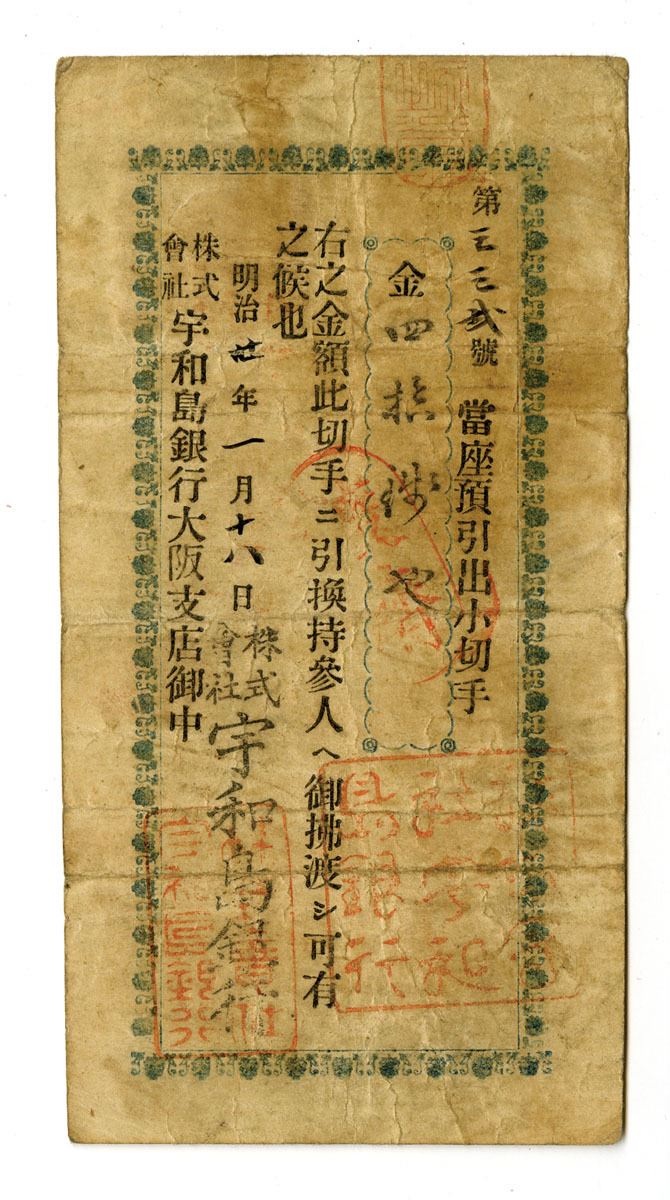 第三三弐號
當座預引出小切手
金四拾銭也
右之金額此切手ニ引換持參人ヘ御拂渡シ可有
之候也
明治卅年一月十八日
株式會社宇和島銀行
株式會社宇和島銀行大阪支店御中